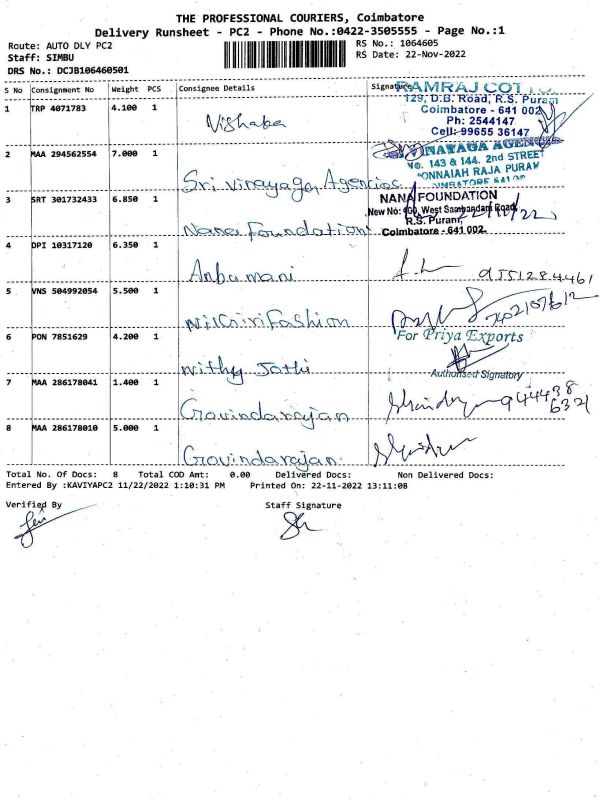 THE PROFESSIONAL COURIERS, Coimbatore
Delivery Runsheet - PC2 - Phone No.:0422-3505555 - Page No.:1
Route: AUTO DLY PC2
RS No.: 1064605
Staff: SIMBU
RS Date: 22-Nov-2022
DRS No.: DCJB106460501
S No Consignment No Weight PCS Consignee Details Signature
RAMRAJ COT
1 TRP 4071783 4.100 1 Vishaka
129, D.B. Road, R.S. Puram
Coimbatore - 641 002
Ph: 2544147
Cell: 99655 36147
2 MAA 294562554 7.000 1 Sri Vinayaga Agencies
VINAYAGA AGENC
No. 143 & 144, 2nd STREET
PONNAIAH RAJA PURAM
3 SRT 301732433 6.850 1 Nana Foundation
NANA FOUNDATION
New No: 400, West Sambandam Road,
R.S. Puram,
Coimbatore - 641 002.
4 DPI 10317120 6.350 1 Anbumani
9551284461
5 VNS 504992054 5.500 1 Nilgiri Fashion
6 PON 7851629 4.200 1 Nithy Jothi
For Priya Exports
Authorised Signatory
7 MAA 286178041 1.400 1 Govindarajan
94438
6321
8 MAA 286178010 5.000 1 Govindarajan
Total No. Of Docs: 8 Total COD Amt: 0.00 Delivered Docs: Non Delivered Docs:
Entered By :KAVIYAPC2 11/22/2022 1:10:31 PM Printed On: 22-11-2022 13:11:08
Verified By Staff Signature